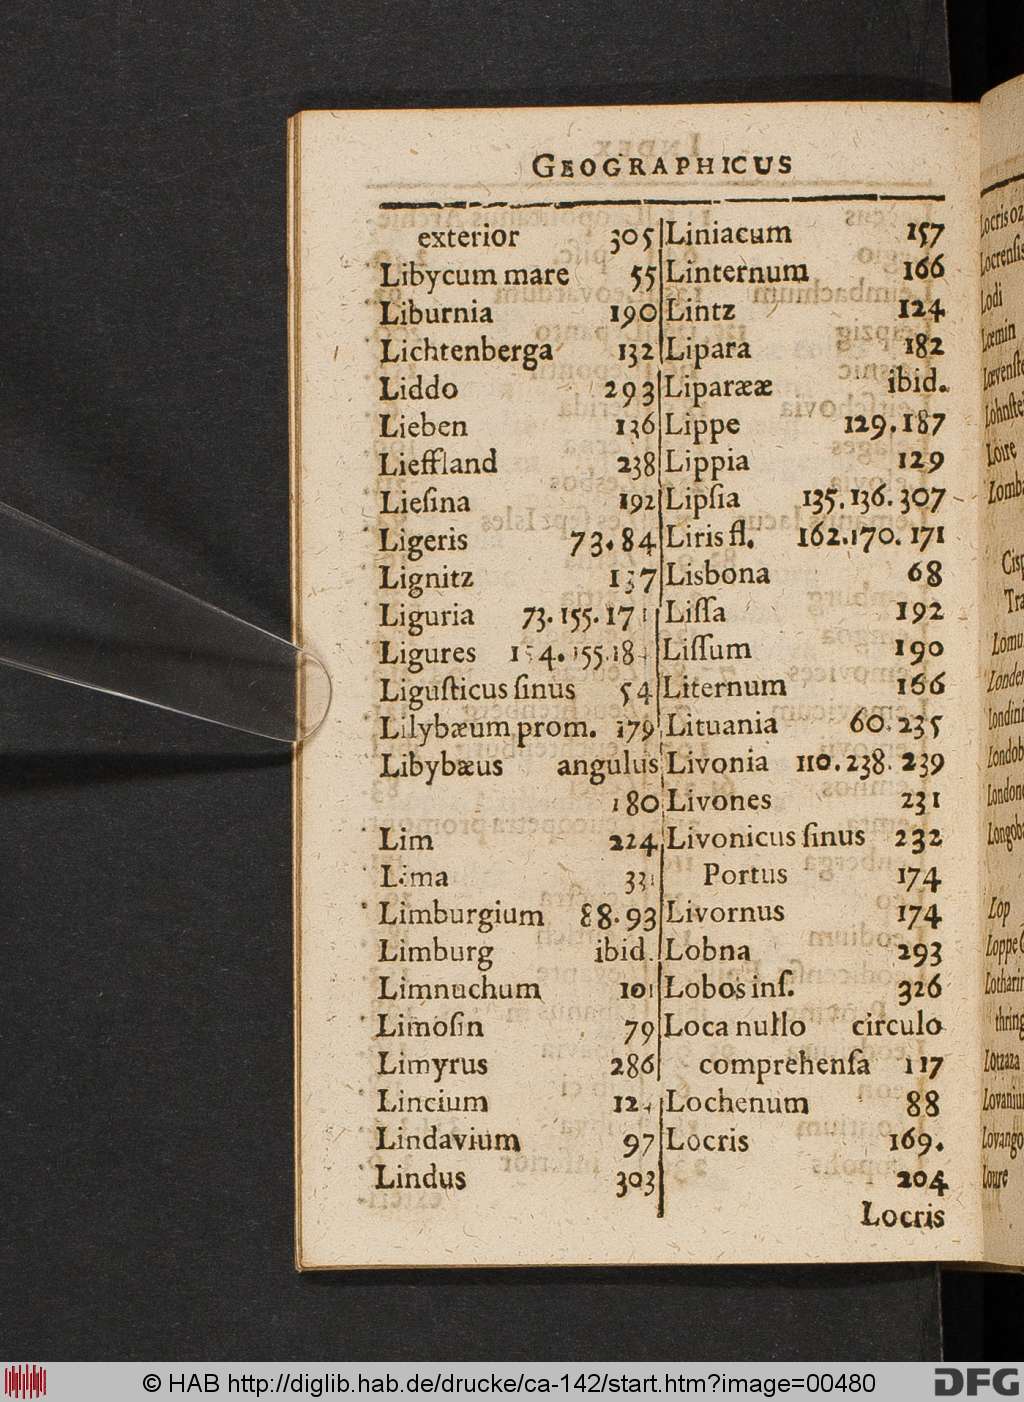 GEOGRAPHICUS
exterior 305
Libycum mare 55
Liburnia 190
Lichtenberga 132
Liddo 293
Lieben 136
Lieffland 238
Lieſina 192
Ligeris 73.84
Lignitz 137
Liguria 73.155.171
Ligures 154.155.184
Liguſticus ſinus 54
Lilybæum prom. 179
Libybæus angulus
180
Lim 224
Lima 331
Limburgium 88.93
Limburg ibid.
Limnuchum 101
Limoſin 79
Limyrus 286
Lincium 124
Lindavium 97
Lindus 303
Liniacum 157
Linternum 166
Lintz 124
Lipara 182
Liparææ ibid.
Lippe 129.187
Lippia 129
Lipſia 135.136.307
Liris fl. 162.170.171
Lisbona 68
Liſſa 192
Liſſum 190
Liternum 166
Lituania 60.235
Livonia 110.238.239
Livones 231
Livonicus ſinus 232
Portus 174
Livornus 174
Lobna 293
Lobos inſ. 326
Loca nullo circulo
comprehenſa 117
Lochenum 88
Locris 169.
204
Locris
Lodi
Loire
Lop
Lotzaza
Lovango
Loure
© HAB http://diglib.hab.de/drucke/ca-142/start.htm?image=00480
DFG